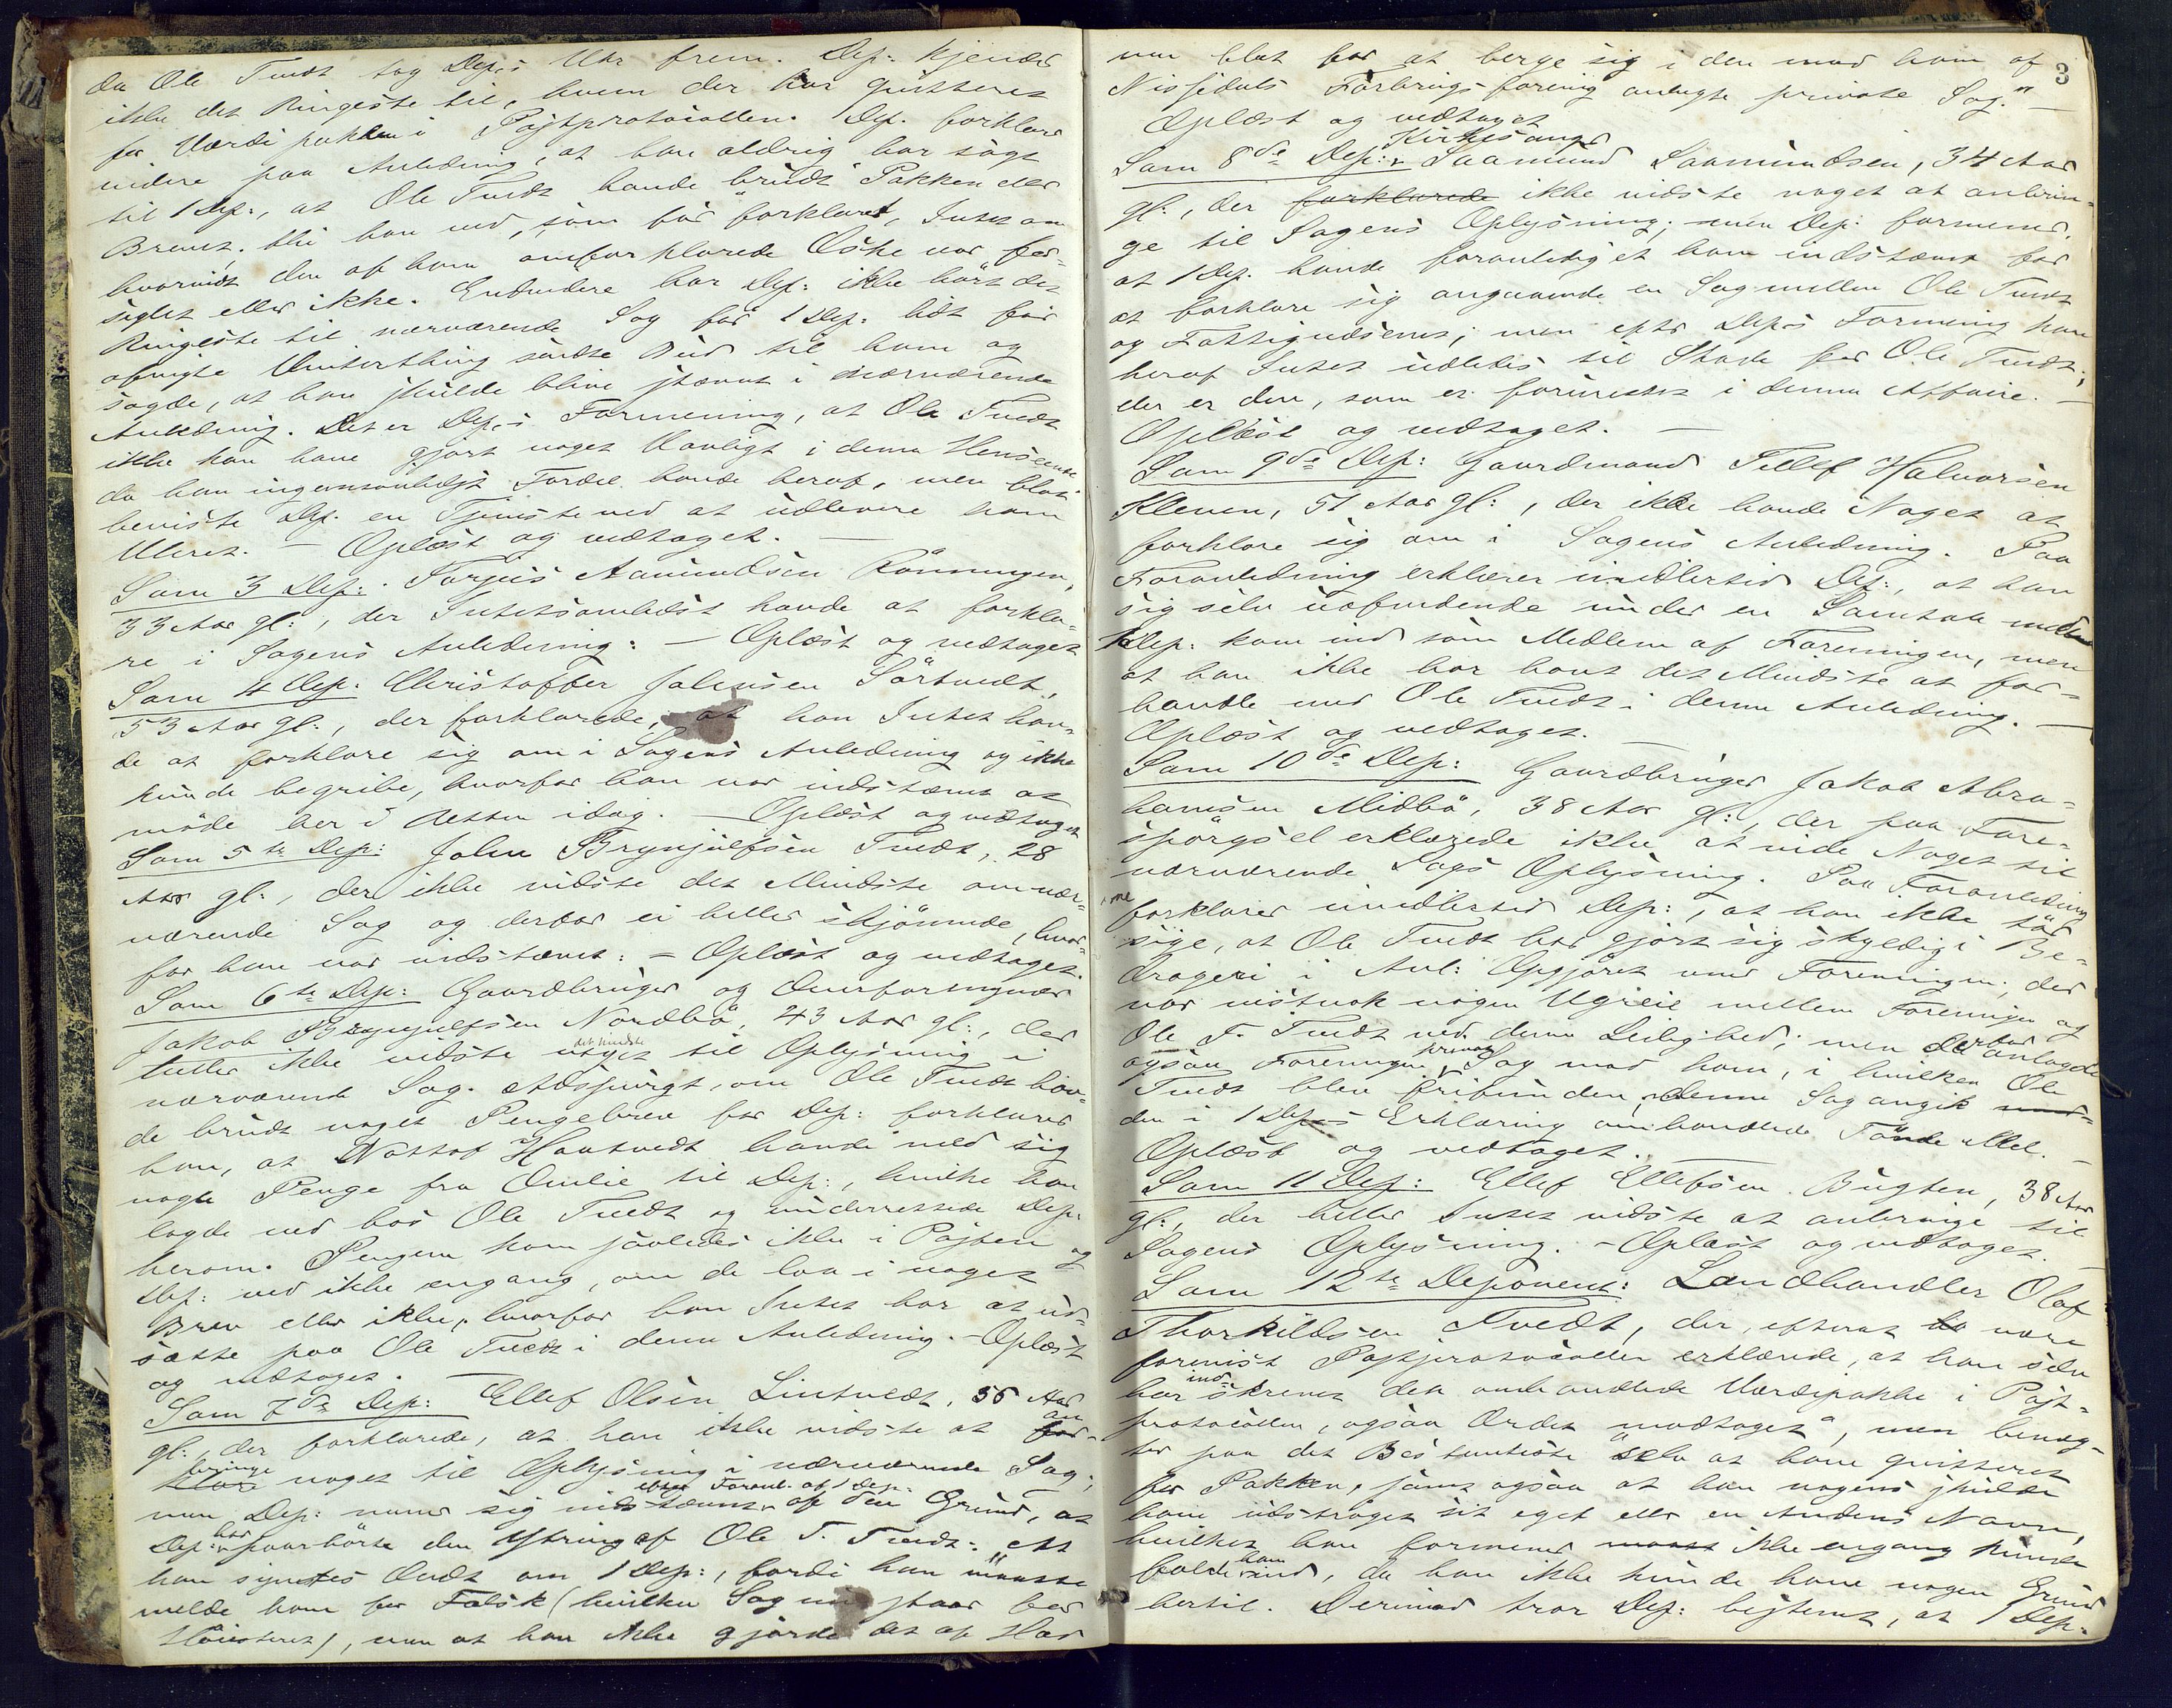 da Ole Tvedt tog Dep.s Uhr frem. Dep: kjender
ikke det Ringeste til, hvem der har qvitteret
for Værdipakken i Postprotocollen. Dep. forklarer
videre paa Anledning, at han aldrig har sagt
til 1 Dep:, at Ole Tvedt havde brudt Pakken eller
Brevet, thi han ved, som før forklaret, Intet om
hvorvidt den af ham omforklarede Æske var for-
seglet eller ikke. Endvidere har Dep: ikke hørt det
Ringeste til nærværende Sag før 1 Dep: lidt før
afvigte Vinterthing sendte Bud til ham og
sagde, at han skulde blive stævnt i nærværende
Anledning. Det er Dep.s Formening, at Ole Tvedt
ikke kan have gjort noget Uærligt i denne Henseende
da han ingensomhelst Fordel havde heraf, men blot
beviste Dep. en Tjeneste ved at udlevere ham
Uhret. — Oplæst og vedtaget. —
Som 3 Dep: Torjus Aanundsen Rønningen,
33 Aar gl:, der Intetsomhelst havde at forkla-
re i Sagens Anledning: — Oplæst og vedtaget
Som 4 Dep: Christoffer Johnsen Sørtvedt,
53 Aar gl:, der forklarede, at han Intet hav-
de at forklare sig om i Sagens Anledning og ikke
kunde begribe, hvorfor han var indstævnt at
møde her i Retten idag. — Oplæst og vedtaget
Som 5te Dep: John Brynjulfsen Tvedt, 28
Aar gl:, der ikke vidste det Mindste om nær-
værende Sag og derfor ei heller skjønnede, hvor-
for han var indstævnt: — Oplæst og vedtaget.
Som 6te Dep: Gaardbruger og Overformynder
Jakob Brynjulfsen Nordbø, 43 Aar gl:, der
heller ikke vidste det mindste til Oplysning i
nærværende Sag. Adspurgt, om Ole Tvedt hav-
de brudt noget Pengebrev for Dep: forklarer
han, at Nottof Hautvedt havde med sig
nogle Penge fra Omlie til Dep:, hvilke han
lagde ned hos Ole Tvedt og underrettede Dep:
herom. Pengene kom saaledes ikke i Posten og
Dep: ved ikke engang, om de laa i noget
Brev eller ikke, hvorfor han Intet har at ud-
sætte paa Ole Tvedt i denne Anledning. — Oplæst
og vedtaget. —
Som 7de Dep: Ellef Olsen Lintvedt, 55 Aar
gl:, der forklarede, at han ikke vidste at an-
bringe noget til Oplysning i nærværende Sag;
men Dep: mener sig indstævnt efter Foranl. af 1 Dep. af den Grund, at
Dep: har paahørte den Yttring af Ole T. Tvedt: at
han syntes Ondt om 1 Dep:, fordi han maatte
melde ham for Falsk (hvilken Sag nu staar for
Høiesteret), men at han ikke gjorde det af Had
3
men blot for at berge sig i den mod ham af
Nissedals Forbrugsforening anlagte private Sag." —
Oplæst og vedtaget
Som 8de Dep: Kirkesanger Saamund Saamundsen, 34 Aar
gl:, der forklarede ikke vidste noget at anbrin-
ge til Sagens Oplysning; men Dep: formener,
at 1 Dep. havde foranlediget ham indstævnt for
at forklare sig angaaende en Sag mellem Ole Tvedt
og Fattigvæsenet; men efter Dep.s Formening kan
heraf Intet udledes til Skade for Ole Tvedt,
der er den, som er forurettet i denne Affaire. —
Oplæst og vedtaget. —
Som 9de Dep: Gaardmand Tellef Halvorsen
Kleven, 51 Aar gl:, der ikke havde Noget at
forklare sig om i Sagens Anledning. Paa
Foranledning erklærer imidlertid Dep:, at han
sig selv uafvidende under en Samtale mellem
1 Dep: kom ind som Medlem af Foreningen, men
at han ikke har havt det Mindste at for-
handle med Ole Tvedt i denne Anledning. —
Oplæst og vedtaget. —
Som 10de Dep: Gaardbruger Jakob Abra-
hamsen Midbø, 38 Aar gl:, der paa Fore-
spørgsel erklærede ikke at vide Noget til
nærværende Sags Oplysning. Paa Foranledning
forklarer imidlertid Dep:, at han ikke tør
sige, at Ole Tvedt har gjort sig skyldig i Be-
drageri i Anl: Opgjøret med Foreningen; der
var vistnok nogen Ugreie mellem Foreningen og
Ole T. Tvedt ved denne Leilighed; men derfor anlagde
ogsaa Foreningen privat Sag mod ham, i hvilken Ole
Tvedt blev frifunden; denne Sag angik
den i 1 Dep.s Erklæring omhandlede Tønde Mel. —
Oplæst og vedtaget. —
Som 11 Dep: Ellef Ellefsen Bugten, 38 Aar
gl:, der heller Intet vidste at anbringe til
Sagens Oplysning. — Oplæst og vedtaget. —
Som 12te Deponent: Landhandler Olaf
Thorkildsen Tvedt, der, efterat være
forevist Postprotocollen erklærede, at han selv
har indskrevet den omhandlede Værdipakke i Post-
protocollen, ogsaa Ordet "modtaget", men benæg-
ter paa det Bestemteste selv at have qvitteret
for Pakken, samt ogsaa at han nogens skulde
have udstrøget sit eget eller en Andens Navn,
hvilket han formener ikke engang kunde
falde ham ind, da han ikke kunde have nogen Grund
hertil. Derimod tror Dep: bestemt, at 1 Dep: